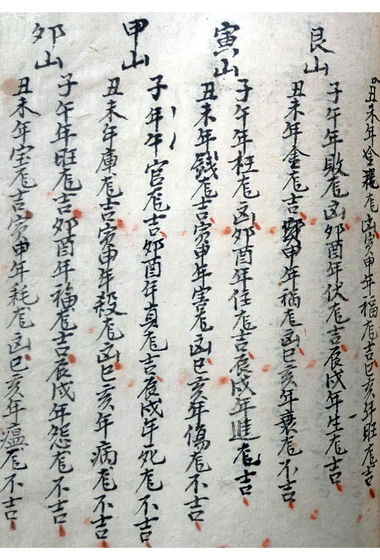 丑未年金䂀庬凶寅申年福庬吉巳亥年旺庬吉
艮山
子午年敗庬凶卯酉年伏庬吉辰戌年生庬吉
丑未年金庬吉寅申年禍庬凶巳亥年衰庬不吉
寅山
子午年枉庬凶卯酉年任庬吉辰戌年進庬吉
丑未年錢庬吉寅申年害庬凶巳亥年傷庬不吉
甲山
子午年官庬吉卯酉年真庬吉辰戌年死庬不吉
丑未年庫庬吉寅申年殺庬凶巳亥年病庬不吉
卯山
子午年旺庬吉卯酉年福庬吉辰戌年怨庬不吉
丑未年宝庬吉寅申年耗庬凶巳亥年瘟庬不吉